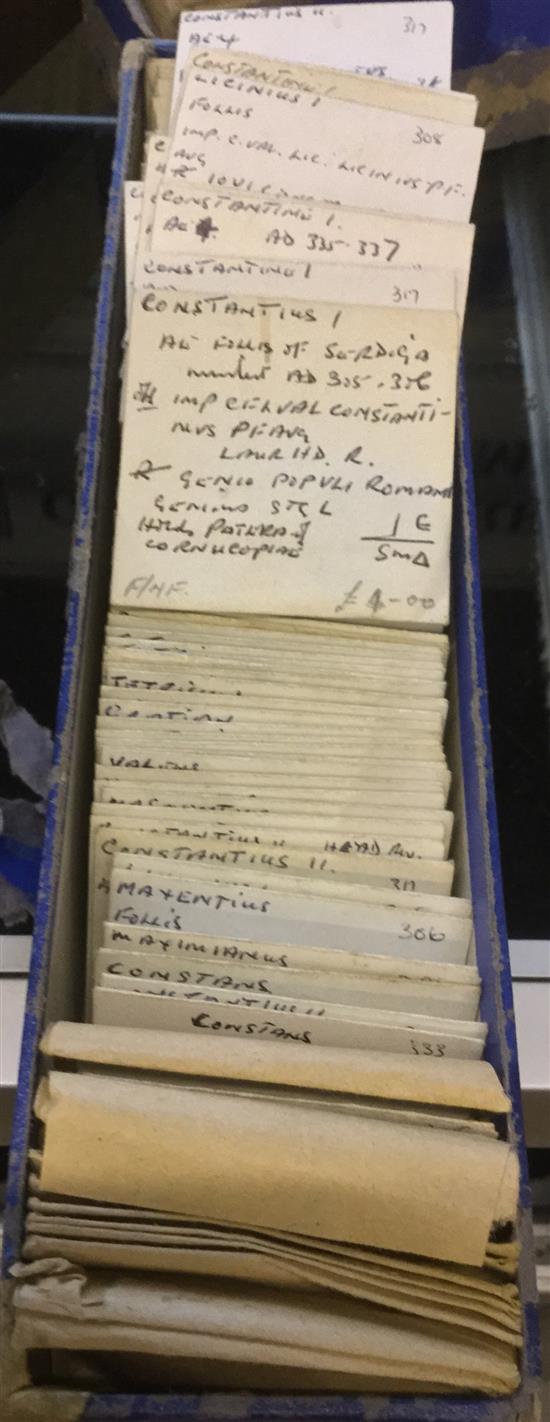 CONSTANTIUS II. 317
AE4
CONSTANTINE I
LICINIUS I
FOLLIS 308
IMP. C. VAL. LIC. LICINIUS P.F.
AUG
CONSTANTINE I.
AE4. AD 335-337
CONSTANTINE I
317
CONSTANTIUS I
AE FOLLIS OF SERDICA
minted AD 305-306
IMP C FL VAL CONSTANTI-
NUS PF AUG
LAUR HD. R.
R GENIO POPULI ROMANI
GENIUS STG L
HOLDS PATERA &
CORNUCOPIAE
| E
SMΔ
F/NF. £4-00
GRATIAN
VALENS
HEAD
CONSTANTIUS II.
317
MAXENTIUS
FOLLIS 306
MAXIMIANUS
CONSTANS
CONSTANS 333